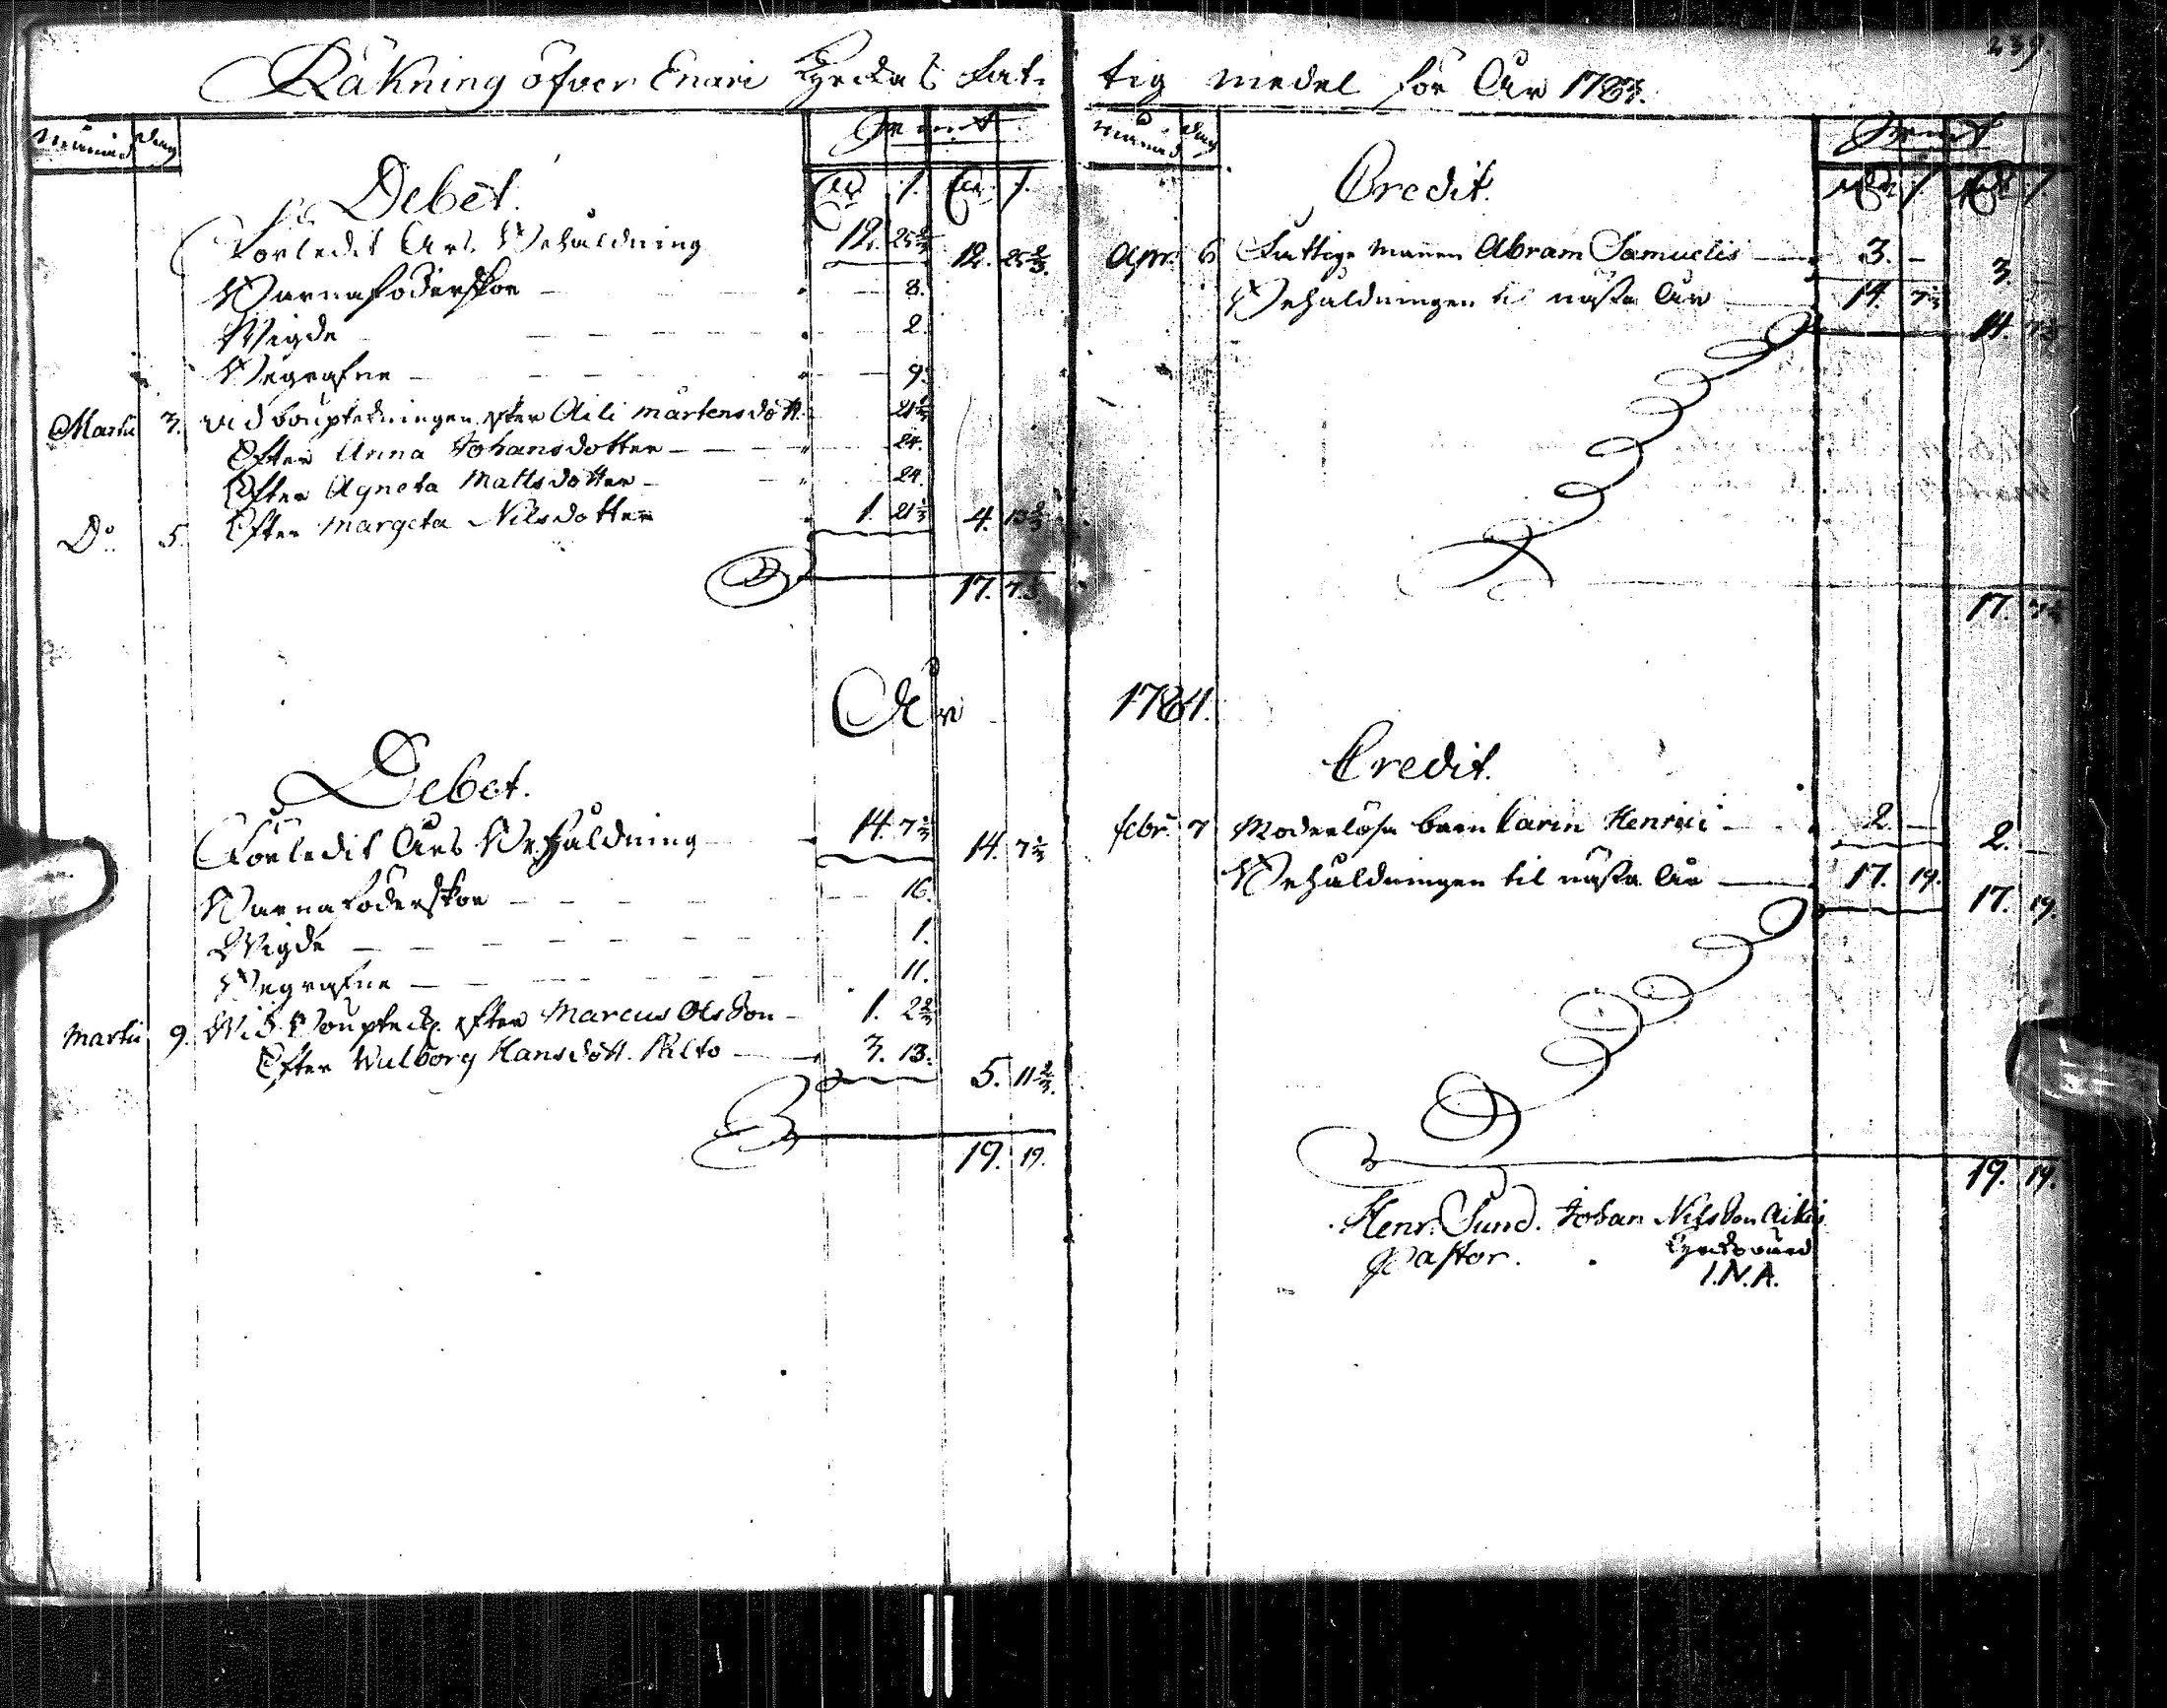 239.
Räkning öfver Enari Kyrckas Fat-
tig medel för År 1783.
Månad Dag
Debet.
Förledit Års Behåldning 12. 25 2/3 12. 25 2/3.
Barnaföderskor 8.
Wigde 2.
Begrafne 9.
Martii 3. vid boupteckningen efter Aili Mårtensdott. 21 1/3
Efter Anna Johansdotter 24.
Efter Agneta Mattsdotter 24.
Do. 5. Efter Margeta Nilsdotter 1. 21 1/3 4. 13 2/3
17. 7 1/3
Månad Dag
Credit.
Apr. 6 Fattige mannen Abram Samuelis 3. – 3. –
Behåldningen til nästa År 14. 7 1/3
14. 7 1/3
17. 7 1/3
År 1784.
Debet.
Förledit Års Behåldning 14. 7 1/3 14. 7 1/3
Barnaföderskor 16.
Wigde 1.
Begrafne 11.
Martii 9. Wid Boupteckn. efter Marcus Olsson 1. 2 2/3
Efter Walborg Hansdott. 3. 13.
5. 11 2/3.
19. 19.
Credit.
febr. 7 Moderlösa barn Carin Henrici 2. – 2. –
Behåldningen til nästa År 17. 19. 17. 19.
19. 19.
Henr. Sund. Johan Nilsson Aikio
Pastor. Kyrckovärd
I.N.A.